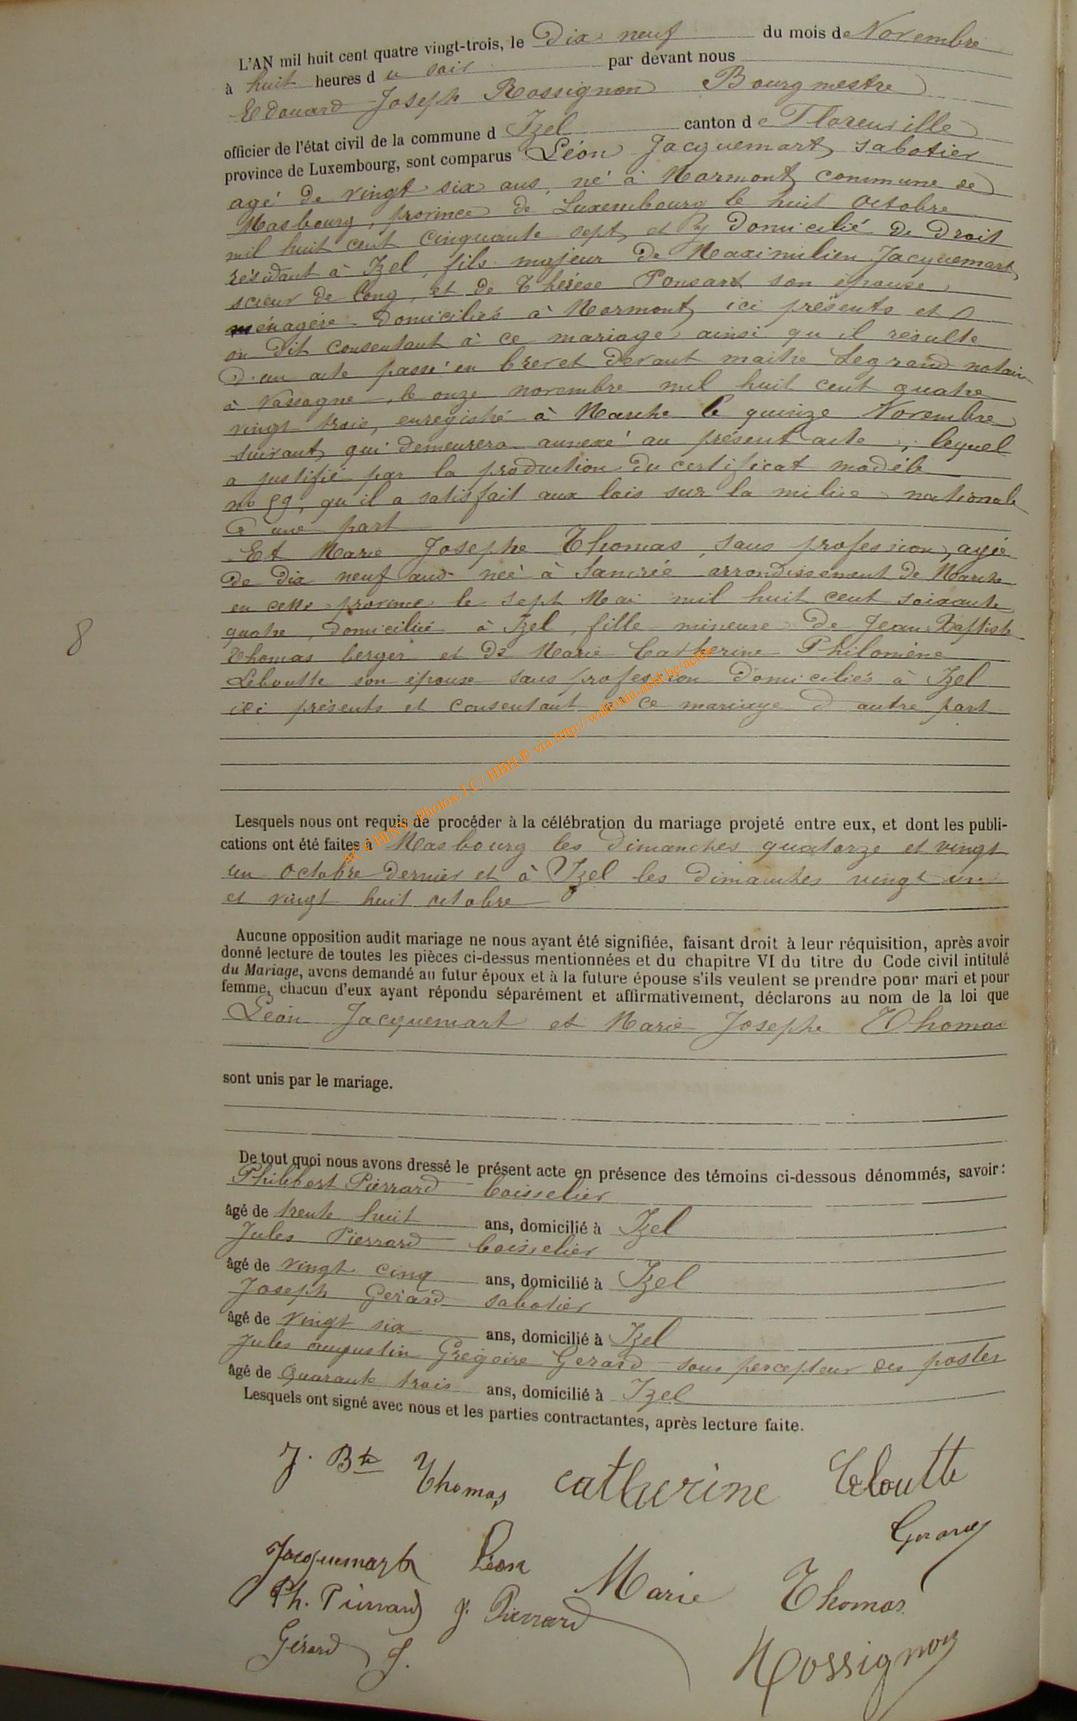 L'AN mil huit cent quatre vingt-trois, le Dix neuf du mois de Novembre
à huit heures du soir par devant nous
Edouard Joseph Rossignon Bourgmestre
officier de l'état civil de la commune d Izel canton de Florenville
province de Luxembourg, sont comparus Léon Jacquemart, sabotier
agé de vingt six ans, né à Mormont commune de
Masbourg, province de Luxembourg le huit Octobre
mil huit cent cinquante sept, et y domicilié de droit
résidant à Izel, fils majeur de Maximilien Jacquemart,
scieur de long, et de Thérèse Ponsart son épouse
ménagère domiciliés à Mormont, ici présents et
on dit consentant à ce mariage ainsi qu il résulte
d'un acte passé en brevet devant maitre Legrand notaire
à le onze novembre mil huit cent quatre
vingt trois, enregistré à Marche le quinze Novembre
suivant, qui demeurera annexé au présent acte, lequel
a justifié par la production du certificat modèle
no 59, qu'il a satisfait aux lois sur la milice nationale
d'une part
Et Marie Josephe Thomas, sans profession, agée
de dix neuf ans née à Samrée arrondissement de Marche
en cette province le sept Mai mil huit cent soixante
quatre, domiciliée à Izel, fille mineure de Jean Baptiste
Thomas berger et de Marie Catherine Philomène
Leboutte son épouse sans profession domiciliés à Izel
ici présents et consentant à ce mariage d autre part
8
Lesquels nous ont requis de procéder à la célébration du mariage projeté entre eux, et dont les publi-
cations ont été faites à Masbourg les dimanches quatorze et vingt
un Octobre dernier et à Izel les dimanches vingt un
et vingt huit octobre
Aucune opposition audit mariage ne nous ayant été signifiée, faisant droit à leur réquisition, après avoir
donné lecture de toutes les pièces ci-dessus mentionnées et du chapitre VI du titre du Code civil intitulé
du Mariage, avons demandé au futur époux et à la future épouse s'ils veulent se prendre pour mari et pour
femme, chacun d'eux ayant répondu séparément et affirmativement, déclarons au nom de la loi que
Léon Jacquemart et Marie Josephe Thomas
sont unis par le mariage.
De tout quoi nous avons dressé le présent acte en présence des témoins ci-dessous dénommés, savoir :
Philibert Pierrard boisselier
âgé de trente huit ans, domicilié à Izel
Jules Pierrard boisselier
âgé de vingt cinq ans, domicilié à Izel
Joseph Gérard sabotier
âgé de vingt six ans, domicilié à Izel
Jules augustin Grégoire Gerard sous percepteur des postes
âgé de quarante trois ans, domicilié à Izel
Lesquels ont signé avec nous et les parties contractantes, après lecture faite.
J. Bte Thomas Catherine Leboutte
Gerard
Jacquemart Léon Marie Thomas
Ph. Pierrard J. Pierrard
Gérard J. Rossignon